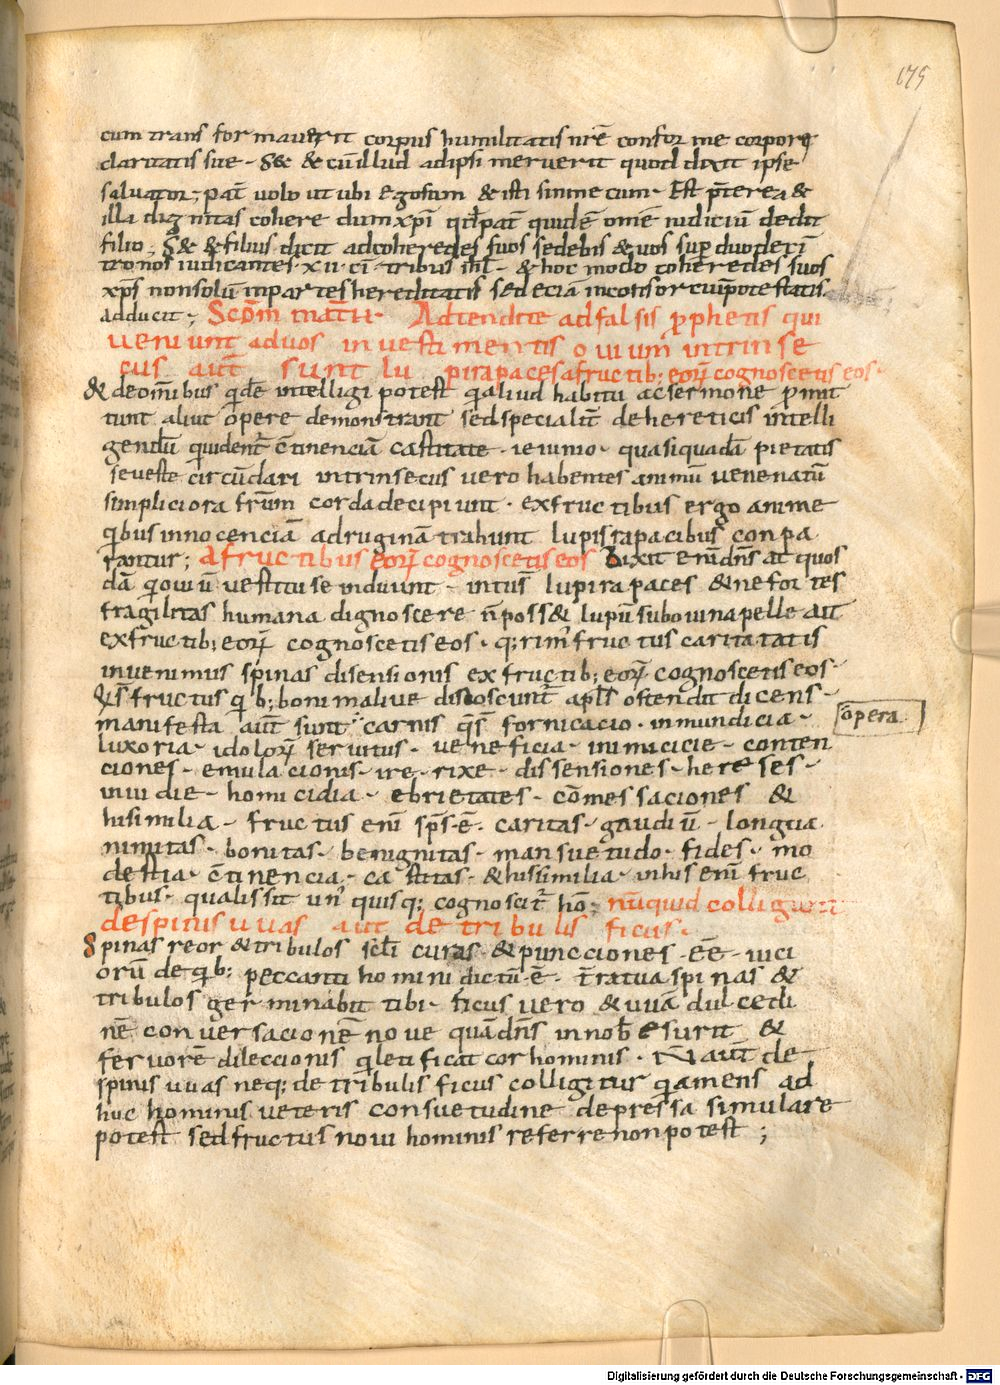 175
cum trans for mauerit corpus humilitatis nr̄e confor me corpore
claritatis sue · S& & cū illud adipsi meruerit quod dixit ipse
saluator; pat̄ uolo ut ubi ego sum & isti sint me cum · Est p̄terea &
illa dignitas cohere dum xp̄i q̄d pat̄ quidē om̄e iudiciū dedit
filio; S& & filius dicit ad coheredes suos sedebis & uos sup̄ duodeci
tronos iudicantes · xii · ci · tribus isrl̄ · & hoc modo coheredes suos
xp̄s non solū in partes hereditatis sed eciā in consorciū potestatis
adducit; Scd̄m math̄ · Adtendite ad falsis p̄ophetis qui
ueniunt ad uos in uestimentis ouium intrinse
cus aut̄ sunt lu pi rapaces a fructib; eorꝝ cognoscetis eos ·
& de om̄ibus q̄dē intelligi potest q̄ aliud habitu ac sermone p̄mit
tunt aliut opere demonstrant sed specialit̄ de hereticis intelli
gendū qui uident̄ c̄tinenciā castitate · ieiunio · quasi quadā pietatis
se ueste circūdari intrinsecus uero habentes animū uenenatū
simpliciora fr̄um corda decipiunt · ex fructibus ergo anime
q̄bus innocenciā ad ruginā trahunt lupis rapacibus conpa
rantur; a fructibus eorꝝ cognoscetis eos Dixit enī dn̄s at quos
dā q̄ ouiū uestitu se induunt · intus lupi rapaces & ne for tes
fragilitas humana dignoscere n̄ poss& lupū sub ouina pelle ait
ex fructib; eorꝝ cognoscetis eos · q; rim̄ fructus caritatatis
inuenimus spinas disensionis ex fructib; eorꝝ cognoscetis eos ·
Q̄s fructus q̄b; boni maliue discoscunt̄ apl̄s ostendit dicens ·
manifesta aut̄ sunt carnis q̄s fornicacio · inmundicia ·
opera
luxoria · idolorꝝ seruitus · ueneficia · inimicicie · conten
ciones · emulacionis · ire · rixe · dissensiones · hereses ·
inuidie · homicidia · ebrietates · cōmessaciones &
his similia · fructus enī sp̄s ē · caritas · gaudiū · longua
nimitas · bonitas · benignitas · mansuetudo · fides · mo
destia · c̄tinencia · castitas · & his similia · in his enī fruc
tibus · qualis sit un̄ quisq; cognoscit̄ hō; nūquid colligunt
de spinis uuas aut de tribulis ficus ·
Spinas reor & tribulos scl̄i curas · & puncciones · eē · uici
orū de q̄b; peccanti homini dictū ē · t̄ra tua spinas &
tribulos germinabit tibi · ficus uero & uuā dulcedi
nē conuersacionē noue quā dn̄s in nob̄ esurit &
feruorē dileccionis q̄ letificat cor hominis · N̄ aut̄ de
spinis uuas neq; de tribulis ficus colligitur q̄a mens ad
huc hominis ueteris consuetudine depressa simulare
potest sed fructus noui hominis referre non potest;
Digitalisierung gefördert durch die Deutsche Forschungsgemeinschaft - DFG